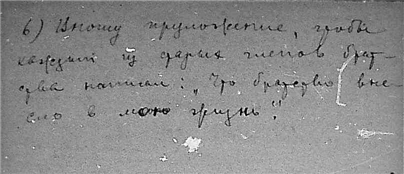 6) Вношу предложение, чтобы
каждый из старых членов брат-
ства написал: „Что братство вне-
сло в мою жизнь".